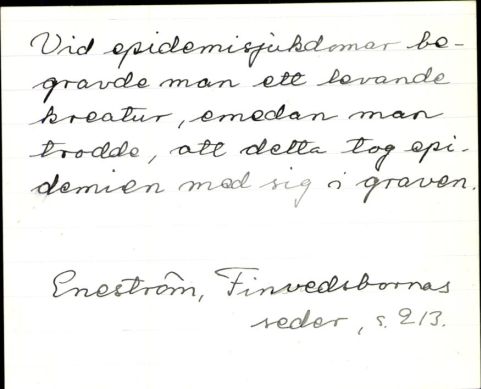 Vid epidemisjukdomar be-
gravde man ett levande
kreatur, emedan man
trodde, att detta tog epi-
demien med sig i graven.
Eneström, Finvedsbornas
seder, s. 213.